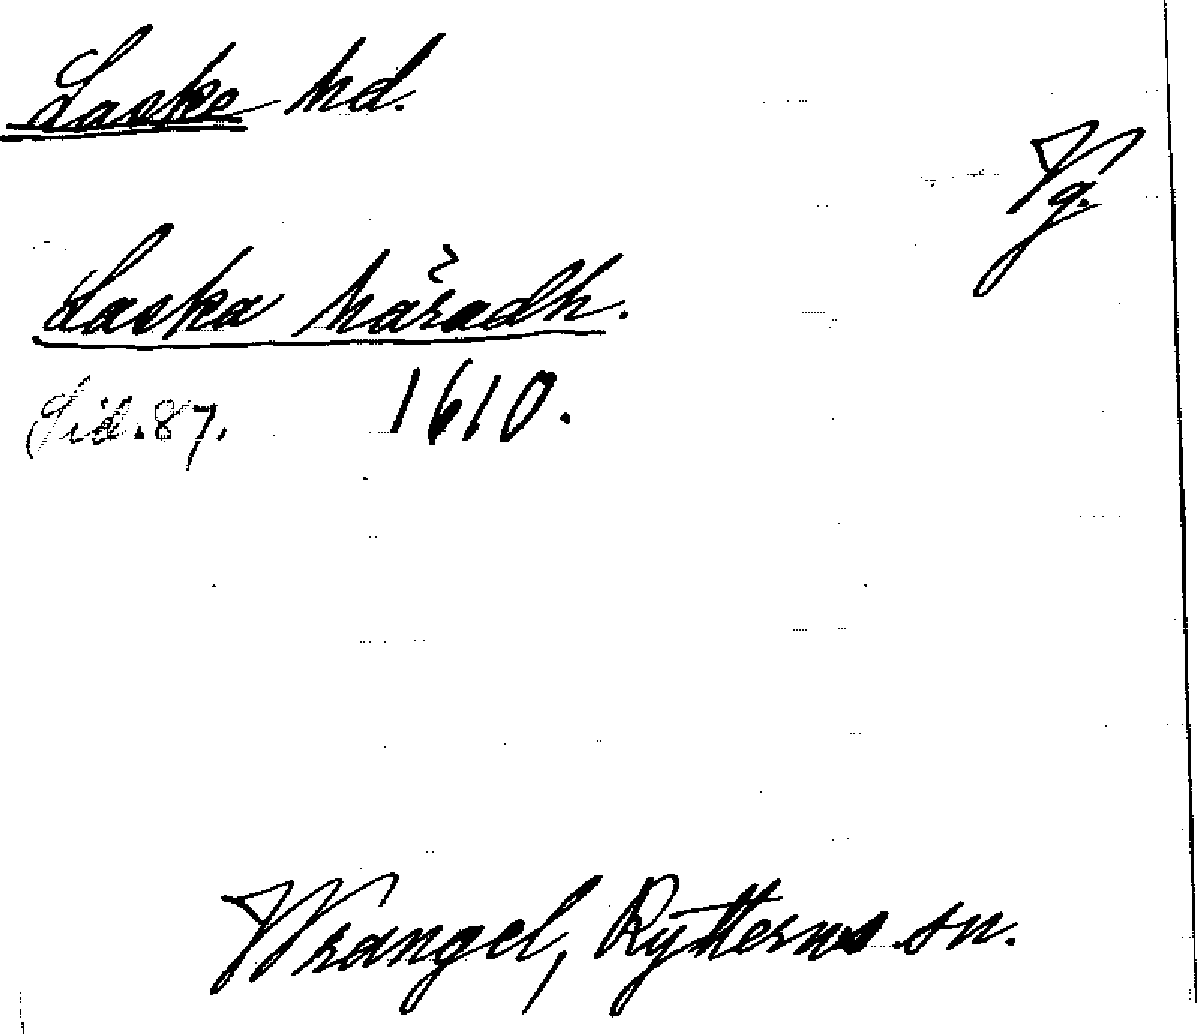 Laske hd.
Vg.
Laska häradh.
Sid. 87. 1610.
Wrangel, Rytterns sn.